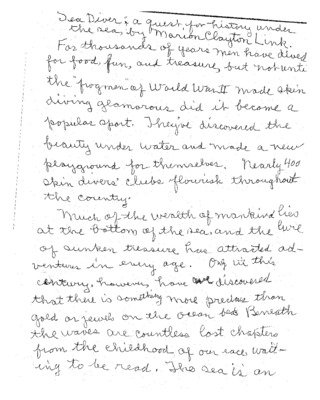 Sea Diver; a quest for history under
the sea, by Marion Clayton Link.
For thousands of years men have dived
for food, fun, and treasure, but not until
the "frogmen" of World War II made skin
diving glamorous did it become a
popular sport. They've discovered the
beauty under water and made a new
playground for themselves. Nearly 400
skin divers' clubs flourish throughout
the country.
Much of the wealth of mankind lies
at the bottom of the sea, and the lure
of sunken treasure has attracted ad-
venturers in every age. Only in this
century, however, have we discovered
that there is something more precious than
gold or jewels on the ocean beds. Beneath
the waves are countless lost chapters
from the childhood of our race, wait-
ing to be read. The sea is an